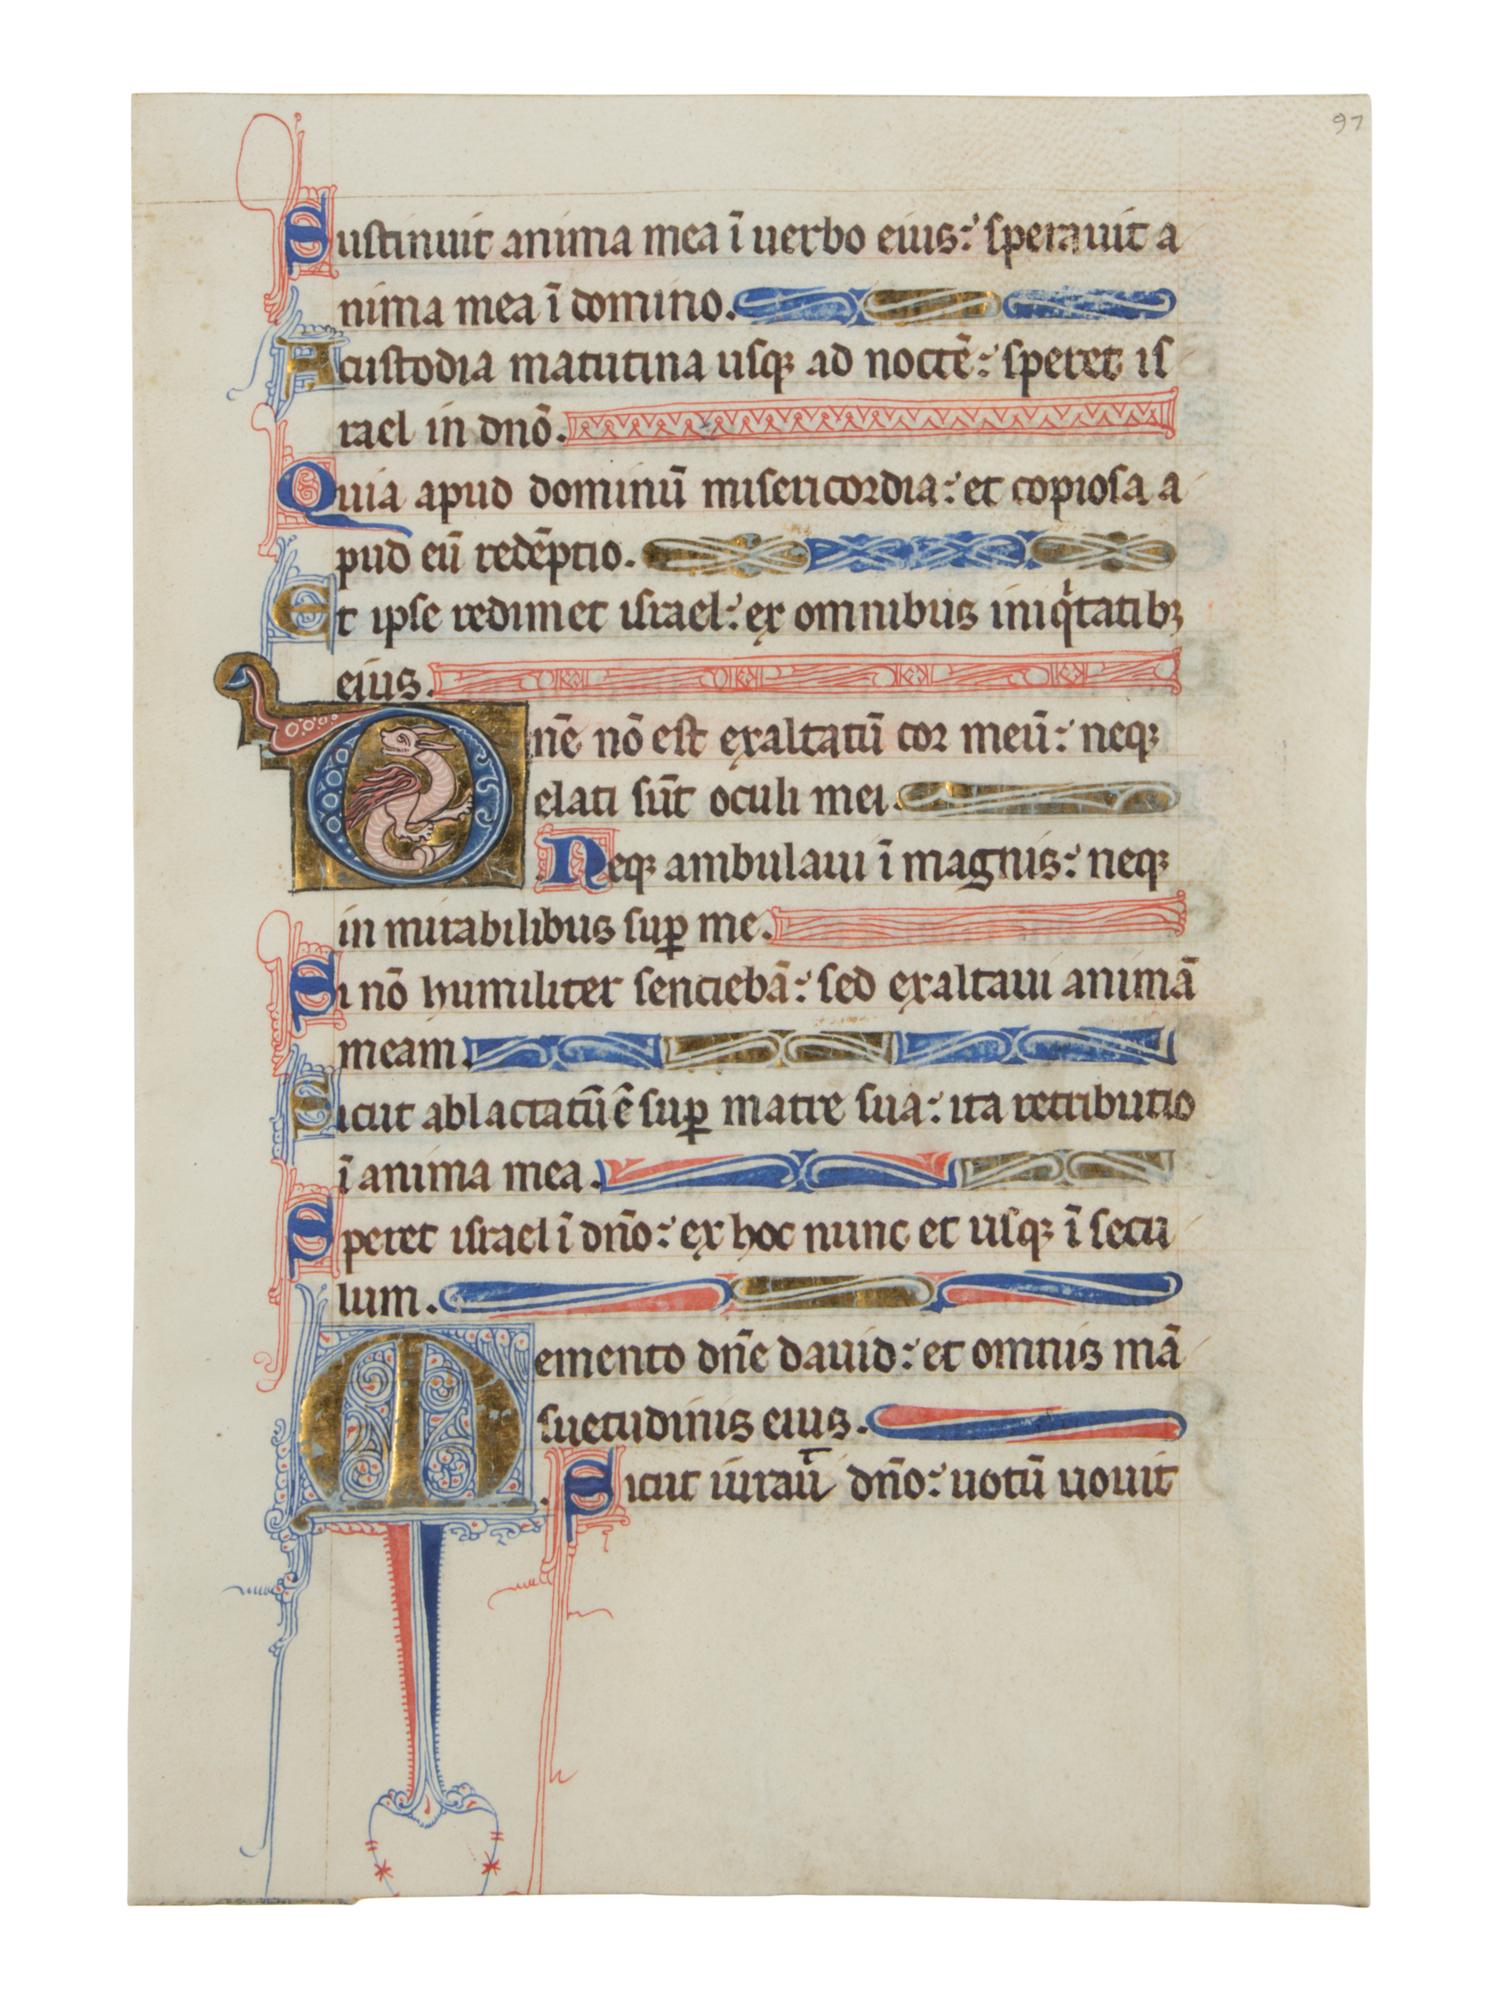 97
Sustinuit anima mea ī uerbo eius: sperauit a
nima mea ī domino.
A custodia matutina usq; ad noctē: speret is
rael in dnō.
Quia apud dominū misericordia: et copiosa a
pud eū redēptio.
Et ipse redimet israel: ex omnibus iniqⁱtatibꝫ
eius.
Dn̄e nō est exaltatū cor meū: neq;
elati sūt oculi mei.
Neq; ambulaui ī magnis: neq;
in mirabilibus suꝑ me.
Si nō humiliter sentiebā: sed exaltaui animā
meam.
Sicut ablactatū ē suꝑ matre sua: ita retributio
ī anima mea.
Speret israel ī dn̄o: ex hoc nunc et usq; ī secu
lum.
Memento dn̄e dauid: et omnis mā
suetudinis eius.
Sicut iurauͭ dn̄o: uotū uouit